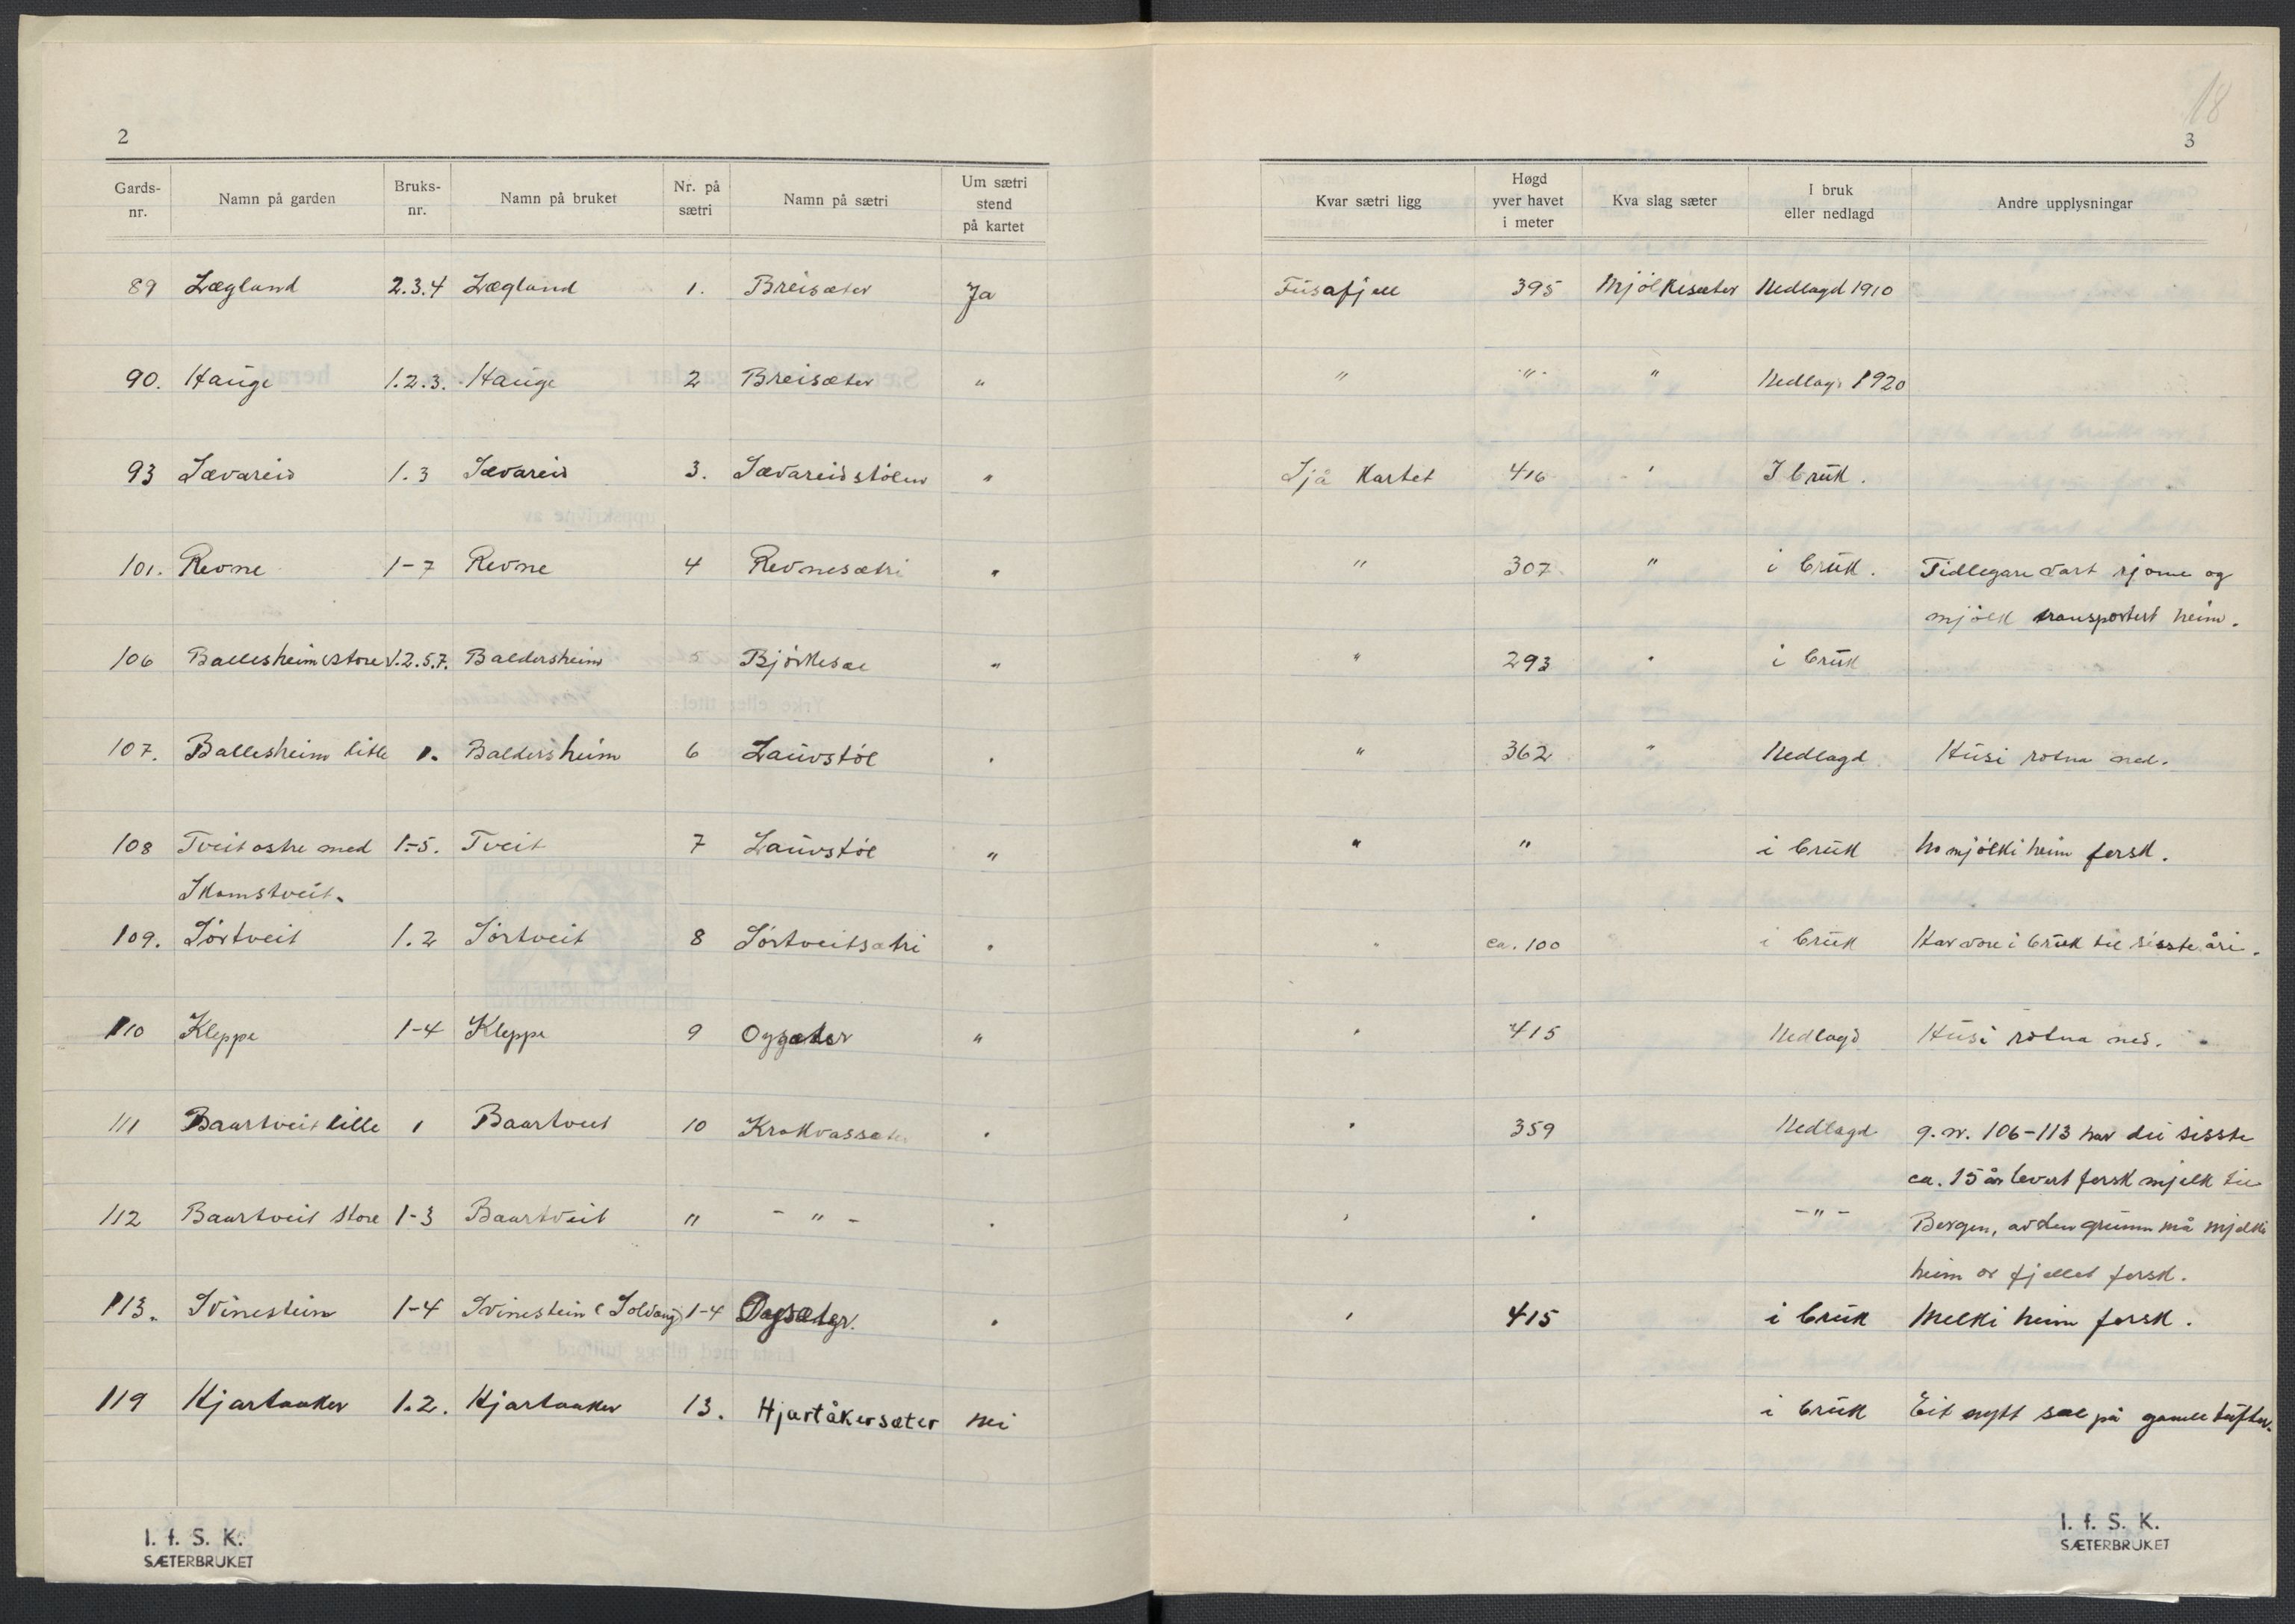 18
2
3
Gards-nr. Namn på garden Bruks-nr. Namn på bruket Nr. på sætri Namn på sætri Um sætri stend på kartet Kvar sætri ligg Høgd yver havet i meter Kva slag sæter I bruk eller nedlagd Andre upplysningar
89 Lægland 2.3.4 Lægland 1. Breisæter Ja Fusafjell 395 Mjølkesæter Nedlagd 1910
90. Hauge 1.2.3. Hauge 2 Breisæter " " " " Nedlagt 1920
93 Sævareid 1.3 Sævareid 3. Sævareidstølen " Sjå Kartet 416 " I bruk.
101. Revne 1-7 Revne 4 Revnesætri " " 307 " i bruk. Tidlegare vart rjome og
mjølk transportert heim.
106 Ballesheim store 1.2.5.7. Baldersheim 5 Bjørkesæl " " 293 " i bruk
107. Ballesheim litle 1. Baldersheim 6 Lauvstøl " " 362 " Nedlagd Husi rotna ned.
108 Tveit østre med 1-5. Tveit 7 Lauvstøl " " " i bruk mjølki heim fersk.
Skomstveit.
109. Sørtveit 1.2 Sørtveit 8 Sørtveitsætri " " ca. 100 i bruk Har vore i bruk til sisste åri.
110 Kleppe 1-4 Kleppe 9 " " 415 Nedlagd Husi rotna ned.
111 Baartveit lille 1 Baartveit 10 Krokvassæter " " 359 Nedlagd g.nr. 106-113 har dei sisste
ca. 15 år levert fersk mjelk til
112 Baartveit store 1-3 Baartveit " - " - " " " - " - Bergen, av den grunn må mjelki
heim or fjellet fersk.
113. Svinestein 1-4 Svinestein (Solvang) 1-4 " " 415 i bruk Melki heim fersk.
119 Hjartaaker 1.2. Hjartaaker 13. Hjartåkersæter nei i bruk Eit nytt sæl på gamle tufter.
I. f. S. K.
SÆTERBRUKET
I. f. S. K.
SÆTERBRUKET